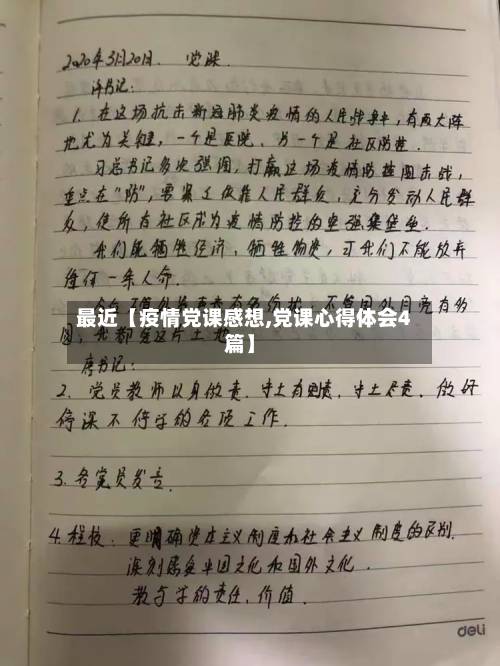 2020年3月20日. 党课.
许书记:
1. 在这场抗击新冠肺炎疫情的人民战争中, 有两大阵
地尤为关键, 一个是医院, 另一个是社区防控.
习总书记多次强调, 打赢这场疫情防控阻击战,
重点在"防", 要紧紧依靠人民群众, 充分发动人民群
众, 使所有社区成为疫情防控的坚强集堡垒.
我们能牺牲经济, 牺牲物资, 可我们不能放弃
任何一条人命.
不管国外月亮有多
圆, 我都
最近【疫情党课感想,党课心得体会4
篇】
唐书记:
2. 党员教师以身做责. 守土有责, 守土尽责, 做好
停课不停学的各项工作.
3. 各党员发言.
4. 程校. 更明确资本主义制度和社会主义制度的区别.
深刻感受中国文化和国外文化.
教与学的责任, 价值.
deli